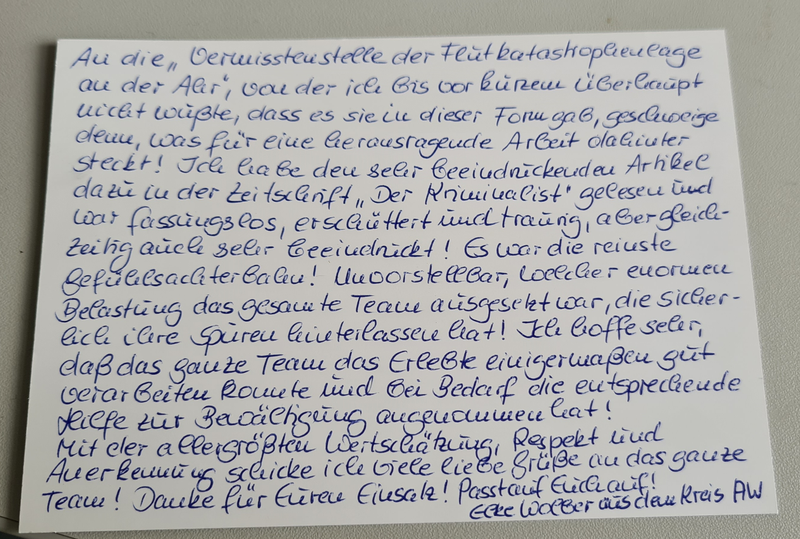 An die „Vermisstenstelle der Flutkatastrophenlage
an der Ahr", von der ich bis vor kurzem überhaupt
nicht wußte, dass es sie in dieser Form gab, geschweige
denn, was für eine herausragende Arbeit dahinter
steckt! Ich habe den sehr beeindruckenden Artikel
dazu in der Zeitschrift „Der Kriminalist" gelesen und
war fassungslos, erschüttert und traurig, aber gleich-
zeitig auch sehr beeindruckt! Es war die reinste
Gefühlsachterbahn! Unvorstellbar, welcher enormen
Belastung das gesamte Team ausgesetzt war, die sicher-
lich ihre Spuren hinterlassen hat! Ich hoffe sehr,
daß das ganze Team das Erlebte einigermaßen gut
verarbeiten konnte und bei Bedarf die entsprechende
Hilfe zur Bewältigung angenommen hat!
Mit der allergrößten Wertschätzung, Respekt und
Anerkennung schicke ich viele liebe Grüße an das ganze
Team! Danke für Euren Einsatz! Passt auf Euch auf!
Wolber aus dem Kreis AW